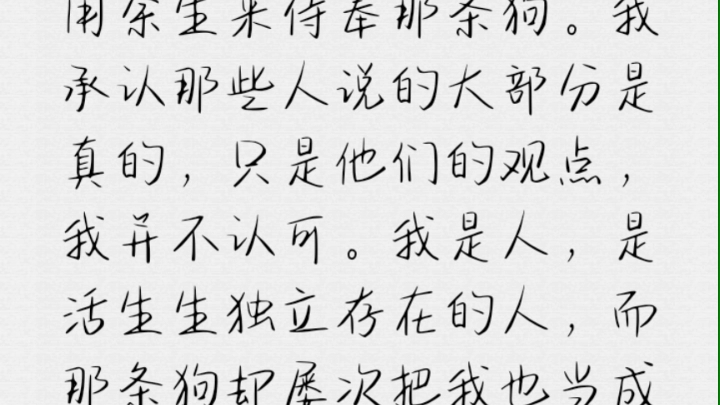 用余生来侍奉那条狗。我
承认那些人说的大部分是
真的，只是他们的观点，
我并不认可。我是人，是
活生生独立存在的人，而
那条狗却屡次把我也当成